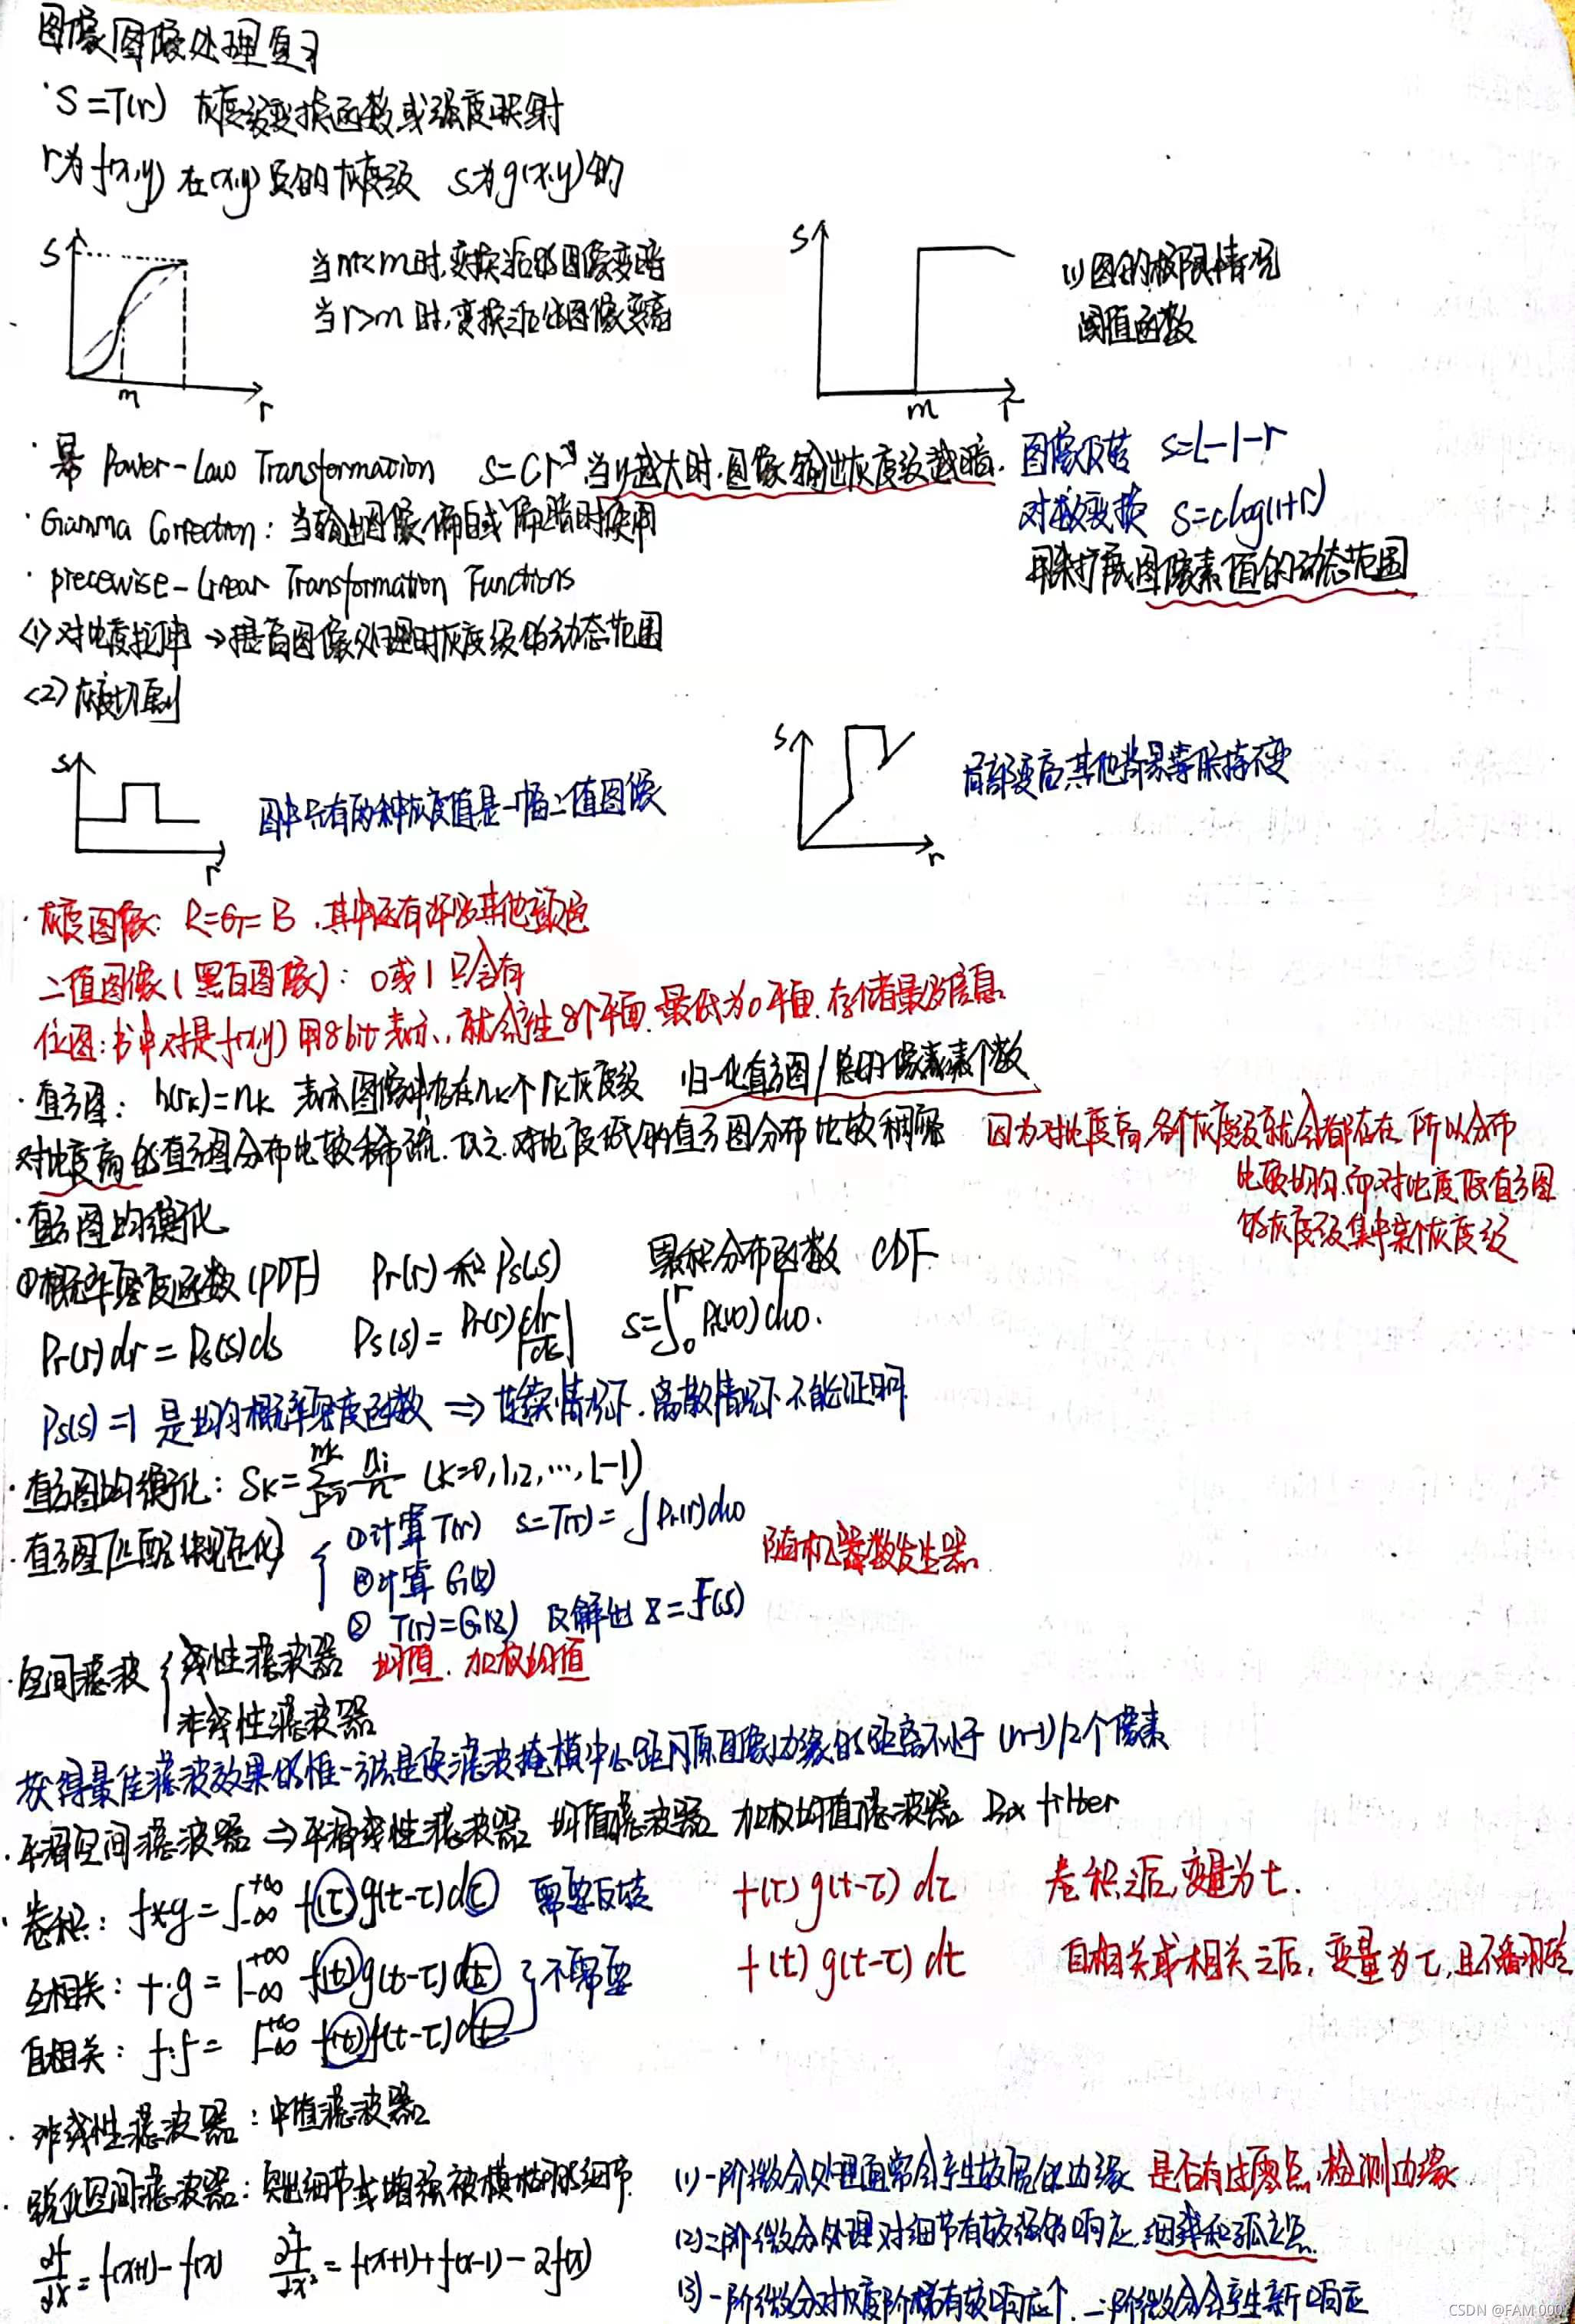 图像图像处理复习
·S=T(r) 灰度级变换函数或强度映射
r为f(x,y)在(x,y)点的灰度级 s为g(x,y)的
S
m
r
当r<m时,变换后的图像变暗
当r>m时,变换后的图像变高
S
m
r
(1)图的极限情况
阈值函数
·幂 Power-Law Transformation S=Cr^γ 当γ越大时,图像输出灰度级越暗.
图像反转 S=L-1-r
·Gamma Correction: 当输出图像偏白或偏暗时使用
对数变换 S=clog(1+r)
用来扩展图像素值的动态范围
·precewise-Linear Transformation Functions
<1>对比度拉伸→提高图像处理时灰度级的动态范围
<2>灰度切割
S
r
图中只有两种灰度值是一幅二值图像
S
r
局部变高,其他背景等保持不变
·灰度图像: R=G=B,其中还有许多其他颜色
二值图像(黑白图像): 0或1只含有
位图:书中对是f(x,y)用8bit表示,就会产生8个平面,最低为0平面,存储最多信息.
·直方图: h(rk)=nk 表示图像中存在nk个rk灰度级 归一化直方图/总的像素素个数
对比度高的直方图分布比较稀疏.反之,对比度低的直方图分布比较稠密
因为对比度高,各个灰度级就会都存在,所以分布
比较均匀,而对比度低直方图
的灰度级集中某个灰度级
·直方图均衡化
①概率密度函数(PDF) Pr(r)和Ps(s) 累积分布函数 CDF
Pr(r)dr=Ps(s)ds Ps(s)=Pr(r)|dr/ds| s=∫₀^r Pr(w)dw.
Ps(s)=1 是均匀概率密度函数⇒连续情况下.离散情况下不能证明
·直方图均衡化: Sk=Σ ni/n (k=0,1,2,…,L-1)
·直方图匹配(规定化) ①计算T(r) s=T(r)=∫Pr(r)dw
②计算G(z)
③ T(r)=G(z) 反解出z=F(s)
随机器数发生器
·空间滤波 线性滤波器 均值.加权均值
非线性滤波器
获得最佳滤波效果的惟一方法是使滤波掩模中心距离原图像边缘的距离不小于(n-1)/2个像素
·平滑空间滤波器⇒平滑线性滤波器 均值滤波器 加权均值滤波器 Box filter
·卷积: f*g=∫-∞^+∞ f(τ)g(t-τ)dτ 需要反转 f(τ)g(t-τ)dτ 卷积之后,变量为t.
互相关: f·g=∫-∞^+∞ f(t)g(t-τ)dt 不需要 f(t)g(t-τ)dt 自相关或相关之后,变量为τ,且不翻转
自相关: f·f=∫-∞^+∞ f(t)f(t-τ)dt
·非线性滤波器: 中值滤波器
·锐化空间滤波器: 突出细节或增强被模糊的细节.
∂f/∂x=f(x+1)-f(x) ∂²f/∂x²=f(x+1)+f(x-1)-2f(x)
(1)一阶微分处理通常会产生较宽的边缘 是否有过零点,检测边缘
(2)二阶微分处理对细节有较强的响应,细线和孤立点.
(3)一阶微分对灰度阶梯有较响应个,二阶微分会产生新响应
CSDN @FAM 000